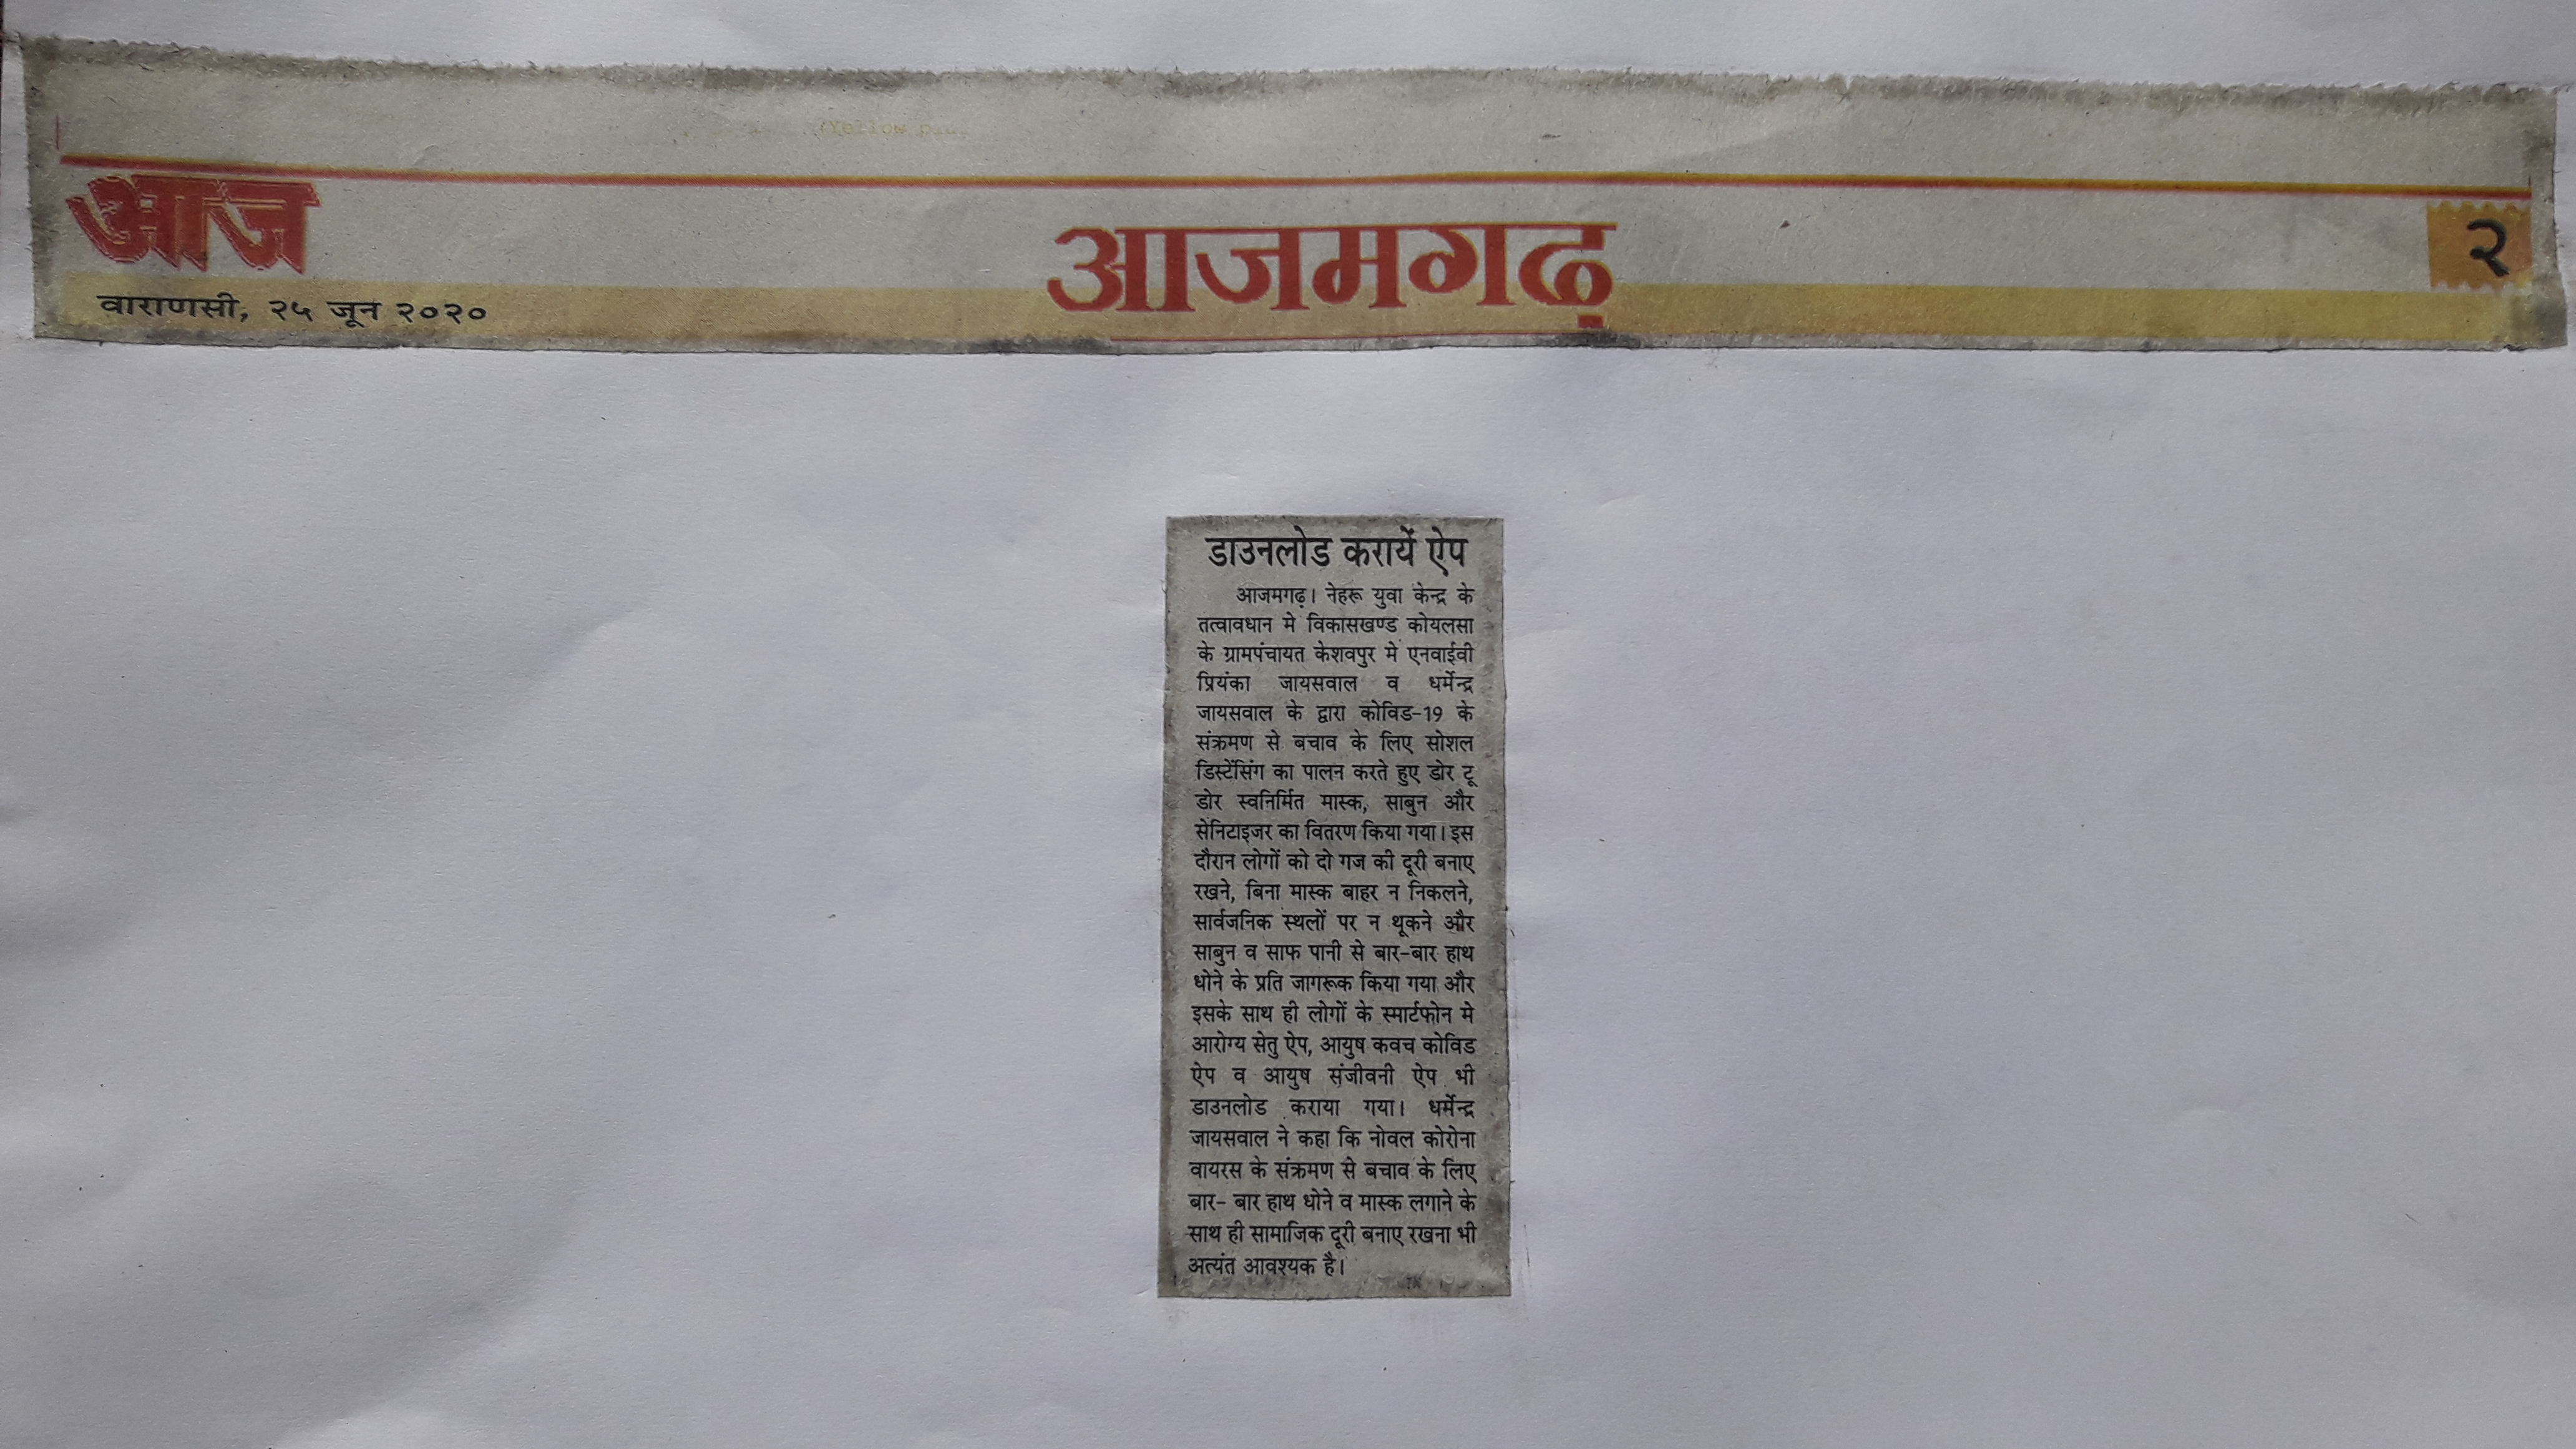 आज
आजमगढ़
२
वाराणसी, २५ जून २०२०
डाउनलोड करायें ऐप
आजमगढ़। नेहरू युवा केन्द्र के
तत्वावधान मे विकासखण्ड कोयलसा
के ग्रामपंचायत केशवपुर मे एनवाईवी
प्रियंका जायसवाल व धर्मेन्द्र
जायसवाल के द्वारा कोविड-19 के
संक्रमण से बचाव के लिए सोशल
डिस्टेंसिंग का पालन करते हुए डोर टू
डोर स्वनिर्मित मास्क, साबुन और
सेनिटाइजर का वितरण किया गया। इस
दौरान लोगों को दो गज की दूरी बनाए
रखने, बिना मास्क बाहर न निकलने,
सार्वजनिक स्थलों पर न थूकने और
साबुन व साफ पानी से बार-बार हाथ
धोने के प्रति जागरूक किया गया और
इसके साथ ही लोगों के स्मार्टफोन मे
आरोग्य सेतु ऐप, आयुष कवच कोविड
ऐप व आयुष संजीवनी ऐप भी
डाउनलोड कराया गया। धर्मेन्द्र
जायसवाल ने कहा कि नोवल कोरोना
वायरस के संक्रमण से बचाव के लिए
बार- बार हाथ धोने व मास्क लगाने के
साथ ही सामाजिक दूरी बनाए रखना भी
अत्यंत आवश्यक है।